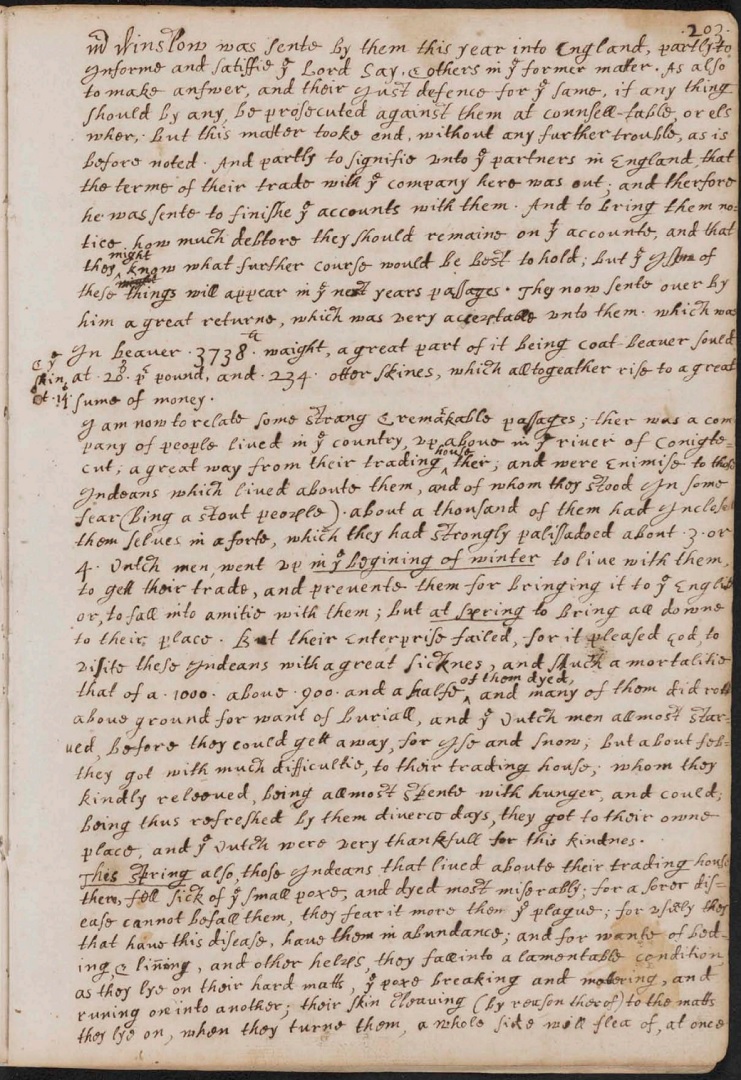 .203.
mr Winslow was sente by them this year into England, partly to
Informe and satisfie yͤ Lord Say, & others in yͤ former mater. As also
to make answer, and their just defence for yͤ same, if any thing
should by any, be prosecuted against them at counsell-table, or els
wher; But this matter tooke end, without any further trouble, as is
before noted. And partly to signifie unto yͤ partners in England, that
the terme of their trade with yͤ company here was out; and therfore
he was sente to finishe yͤ accounts with them. And to bring them no=
tice, how much debtore they should remaine on yͭ accounte, and that
they might know what further course would be best to hold; but yͤ Issue of
these things will appear in yͤ next years passages. They now sente over by
him a great returne, which was very acceptable unto them. which was
In beaver .3738ˡⁱ. waight, a great part of it being coat-beaver sould
at .20ˢ. pͬ pound, and .234. otter skines, which alltogeather rise to a great
& yͤ
skin
at .14ˢ
sume of money.
I am now to relate some strang & remarkable passages; ther was a com
pany of people lived in yͤ country, up above in yͤ river of Conigte=
cut, a great way from their trading house ther; and were Enimise to those
Indeans which lived aboute them, and of whom they stood In some
fear (bing a stout people). about a thousand of them had Inclosed
them selves in a forte, which they had strongly palissadoed about .3. or
4. Dutch men went up in yͤ begining of winter to live with them,
to gett their trade, and prevente them for bringing it to yͤ English
or, to fall into amitie with them; but at spring to bring all downe
to their place. But their Enterprise failed, for it pleased God, to
visite these Indeans with a great sicknes, and such a mortalitie
that of a .1000. above .900. and a halfe of them dyed, and many of them did rott
above ground for want of buriall, and yͤ Dutch men allmost star=
ved, before they could gett away, for Ise and snow; but about feb=
they got with much difficultie, to their trading house; whom they
kindly releeved, being allmost spente with hunger, and could;
being thus refreshed by them diverce days, they got to their owne
place, and yͤ Dutch were very thankfull for this kindnes.
This spring also, those Indeans that lived aboute their trading house
there, fell sick of yͤ small poxe, and dyed most miserably; for a sorer dis=
ease cannot befall them, they fear it more then yͤ plague; for usually they
that have this disease, have them in abundance; and for wante of bed=
ing, & lining, and other helps they fall into a lamentable condition,
as they lye on their hard matts, yͤ poxe breaking and matering, and
runing one into another; their skin cleaving (by reason therof) to the matts
they lye on, when they turne them, a whole side will flea of, at once